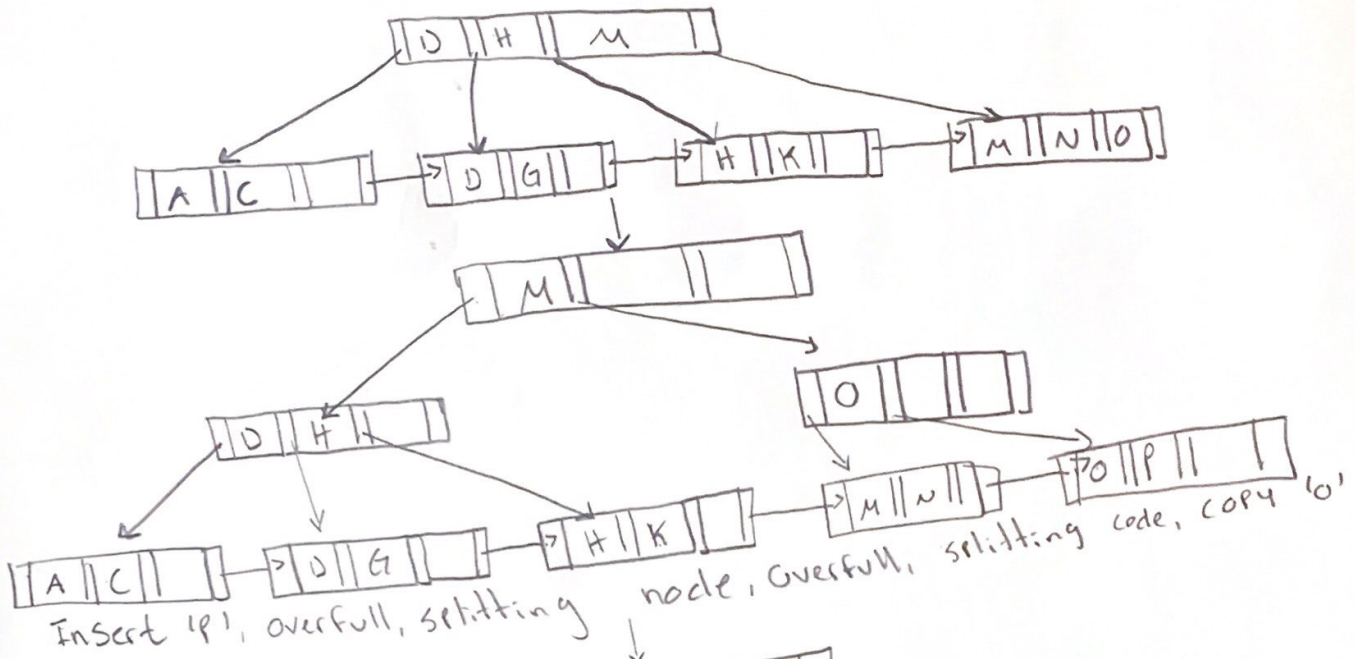 D H M
A C D G H K M N O
M
O
D H
A C D G H K M N O P
Insert 'P', overfull, splitting node, overfull, splitting code, copy 'O'